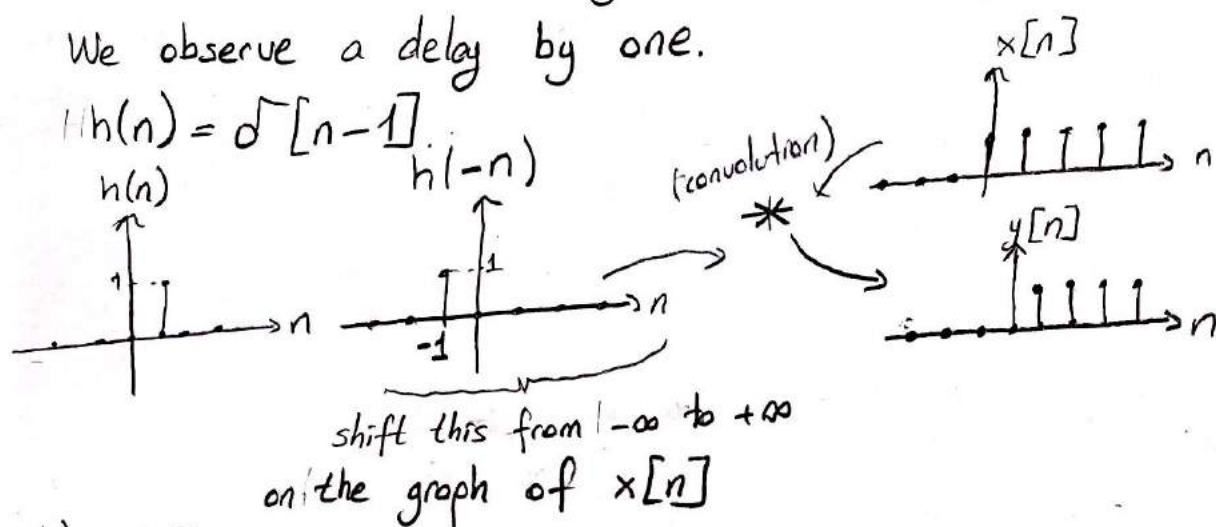 We observe a delay by one.
h(n) = δ[n-1].
h(n)
1
n
h(-n)
1
-1
n
(convolution)
*
x[n]
n
y[n]
n
shift this from -∞ to +∞
on the graph of x[n]